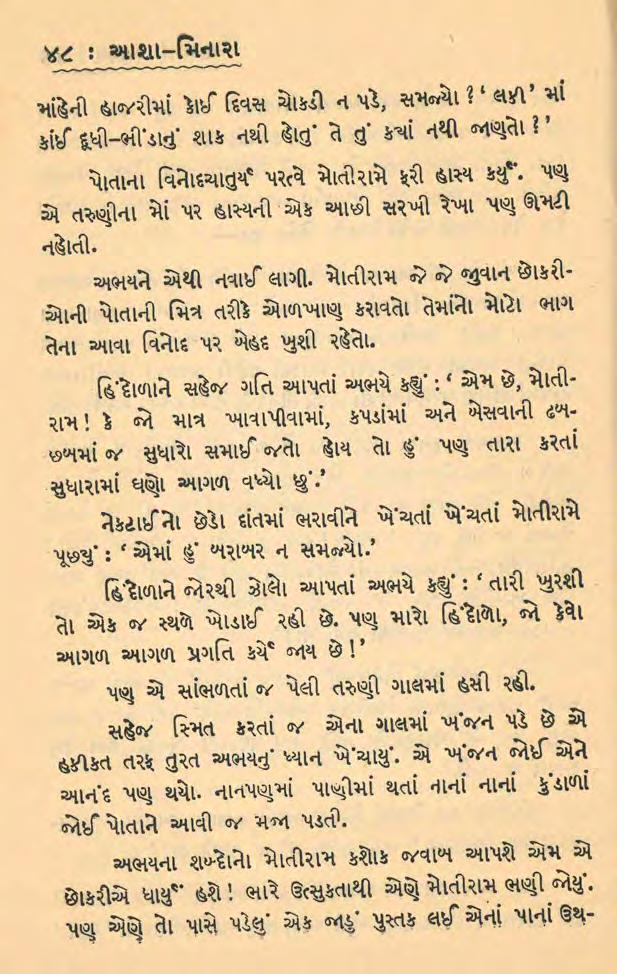 ૪૮ : આશા–મિનારા
માંહેની હાજરીમાં કોઈ દિવસ ચોકડી ન પડે, સમજ્યો ? ‘ લકી ’ માં
કાંઈ દૂધી–ભીંડાનું શાક નથી હોતું તે તું કયાં નથી જાણતો ? ’
પોતાના વિનોદચાતુર્ય પરત્વે મોતીરામે ફરી હાસ્ય કર્યું. પણ
એ તરુણીના મોં પર હાસ્યની એક આછી સરખી રેખા પણ ઊમટી
નહોતી.
અભયને એથી નવાઈ લાગી. મોતીરામ જે જે જુવાન છોકરી-
ઓની પોતાની મિત્ર તરીકે ઓળખાણ કરાવતો તેમાંનો મોટો ભાગ
તેના આવા વિનોદ પર બેહદ ખુશી રહેતો.
હિંદોળાને સહેજ ગતિ આપતાં અભયે કહ્યું : ‘ એમ છે, મોતી-
રામ ! કે જો માત્ર ખાવાપીવામાં, કપડાંમાં અને બેસવાની ઢબ-
છબમાં જ સુધારો સમાઈ જતો હોય તો હું પણ તારા કરતાં
સુધારામાં ઘણો આગળ વધ્યો છું.’
નેકટાઈનો છેડો દાંતમાં ભરાવીને ખેંચતાં ખેંચતાં મોતીરામે
પૂછયું : ‘ એમાં હું બરાબર ન સમજ્યો.’
હિંદોળાને જોરથી ઝોલો આપતાં અભયે કહ્યું : ‘ તારી ખુરશી
તો એક જ સ્થળે ખોડાઈ રહી છે. પણ મારો હિંદોળો, જો કેવો
આગળ આગળ પ્રગતિ કર્યે જાય છે ! ’
પણ એ સાંભળતાં જ પેલી તરુણી ગાલમાં હસી રહી.
સહેજ સ્મિત કરતાં જ એના ગાલમાં ખંજન પડે છે એ
હકીકત તરફ તુરત અભયનું ધ્યાન ખેંચાયું. એ ખંજન જોઈ એને
આનંદ પણ થયો. નાનપણમાં પાણીમાં થતાં નાનાં નાનાં કુંડાળાં
જોઈ પોતાને આવી જ મજા પડતી.
અભયના શબ્દોનો મોતીરામ કશોક જવાબ આપશે એમ એ
છોકરીએ ધાર્યું હશે ! ભારે ઉત્સુકતાથી એણે મોતીરામ ભણી જોયું.
પણ એણે તો પાસે પડેલું એક જાડું પુસ્તક લઈ એનાં પાનાં ઉથ-